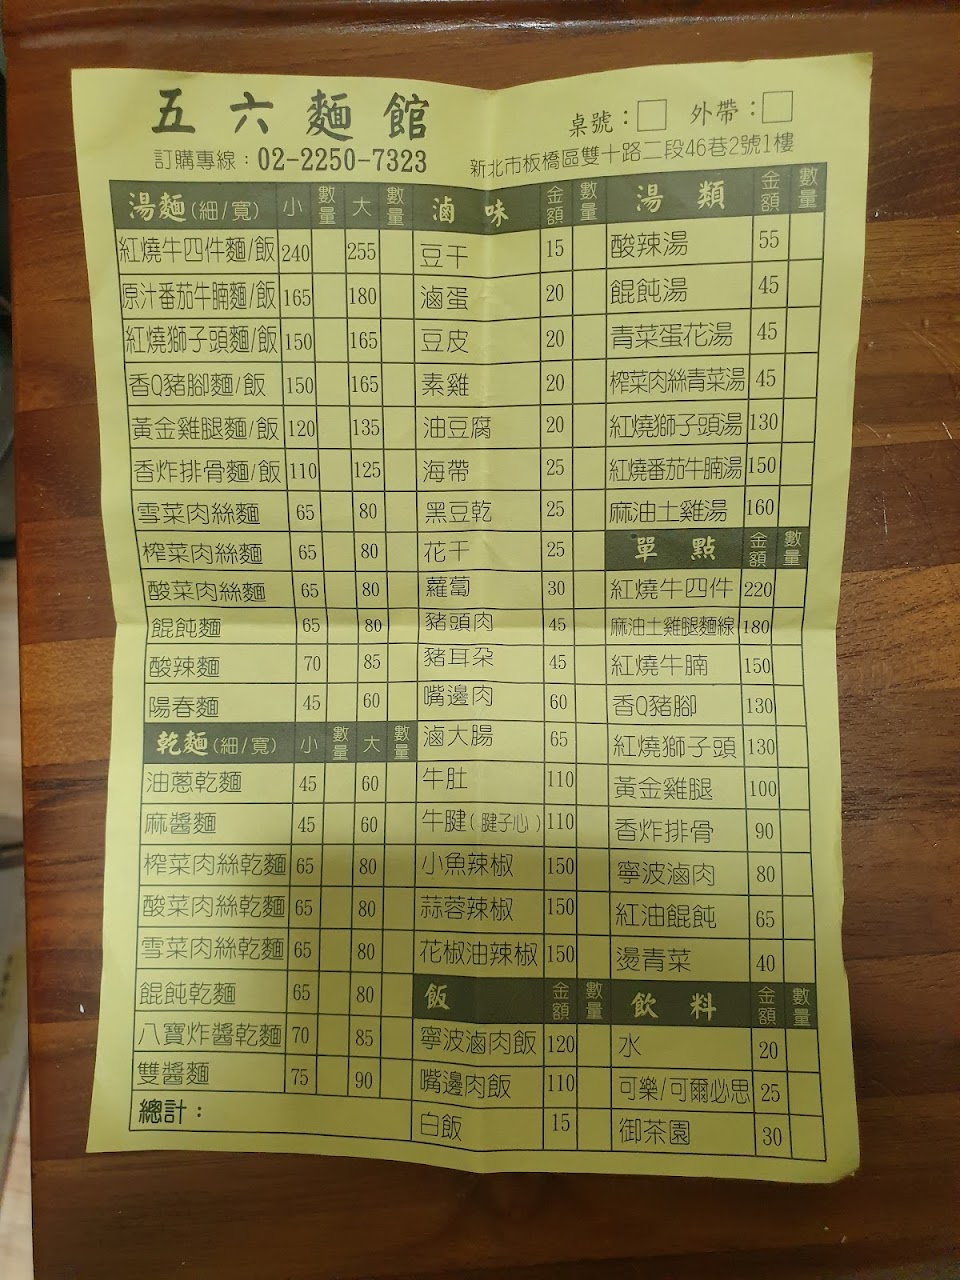 五六麵館
桌號：□ 外帶：□
訂購專線：02-2250-7323
新北市板橋區雙十路二段46巷2號1樓
湯麵(細/寬) 小 數量 大 數量
紅燒牛四件麵/飯 240 255
原汁番茄牛腩麵/飯 165 180
紅燒獅子頭麵/飯 150 165
香Q豬腳麵/飯 150 165
黃金雞腿麵/飯 120 135
香炸排骨麵/飯 110 125
雪菜肉絲麵 65 80
榨菜肉絲麵 65 80
酸菜肉絲麵 65 80
餛飩麵 65 80
酸辣麵 70 85
陽春麵 45 60
乾麵(細/寬) 小 數量 大 數量
油蔥乾麵 45 60
麻醬麵 45 60
榨菜肉絲乾麵 65 80
酸菜肉絲乾麵 65 80
雪菜肉絲乾麵 65 80
餛飩乾麵 65 80
八寶炸醬乾麵 70 85
雙醬麵 75 90
總計：
滷味 金額 數量
豆干 15
滷蛋 20
豆皮 20
素雞 20
油豆腐 20
海帶 25
黑豆乾 25
花干 25
蘿蔔 30
豬頭肉 45
豬耳朶 45
嘴邊肉 60
滷大腸 65
牛肚 110
牛腱(腱子心) 110
小魚辣椒 150
蒜蓉辣椒 150
花椒油辣椒 150
飯 金額 數量
寧波滷肉飯 120
嘴邊肉飯 110
白飯 15
湯類 金額 數量
酸辣湯 55
餛飩湯 45
青菜蛋花湯 45
榨菜肉絲青菜湯 45
紅燒獅子頭湯 130
紅燒番茄牛腩湯 150
麻油土雞湯 160
單點 金額 數量
紅燒牛四件 220
麻油土雞腿麵線 180
紅燒牛腩 150
香Q豬腳 130
紅燒獅子頭 130
黃金雞腿 100
香炸排骨 90
寧波滷肉 80
紅油餛飩 65
燙青菜 40
飲料 金額 數量
水 20
可樂/可爾必思 25
御茶園 30